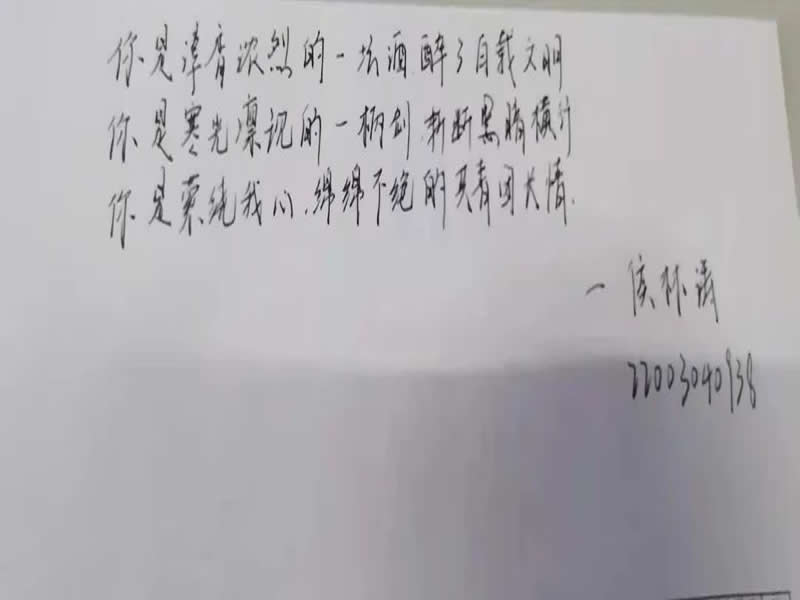 你是清香浓烈的一坛酒,醉了自我文明
你是寒光凛冽的一柄剑,斩断黑暗横行
你是萦绕我心,绵绵不绝的共青团大情.
一侯林涛
22003040938